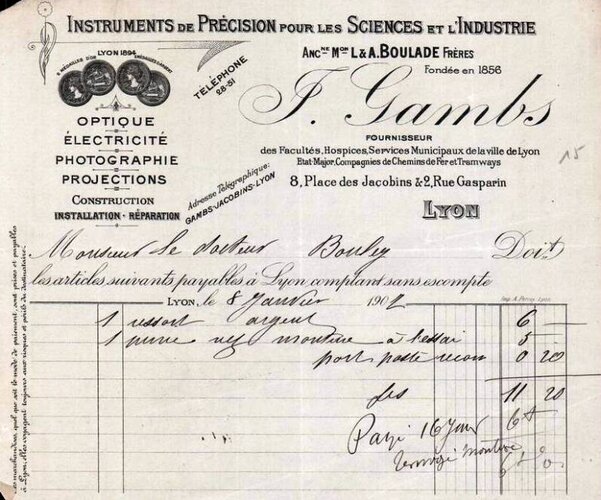 INSTRUMENTS DE PRÉCISION POUR LES SCIENCES ET L'INDUSTRIE
LYON 1894
TÉLÉPHONE
28-51
ANCNE MON L & A. BOULADE FRÈRES
Fondée en 1856
F. Gambs
FOURNISSEUR
des Facultés, Hospices, Services Municipaux de la ville de Lyon
Etat-Major, Compagnies de Chemins de Fer et Tramways
8, Place des Jacobins & 2, Rue Gasparin
LYON
15
OPTIQUE
ÉLECTRICITÉ
PHOTOGRAPHIE
PROJECTIONS
CONSTRUCTION
INSTALLATION - RÉPARATION
Adresse Télégraphique:
GAMBS-JACOBINS-LYON
Monsieur le docteur Bouley Doit
les articles suivants payables à Lyon comptant sans escompte
Lyon, le 8 Janvier 1902
1 ressort argent 6
1 pince nez monture à l'essai 5
port poste recom 0 20
11 20
Payé 16 Janv
renvoyé monture